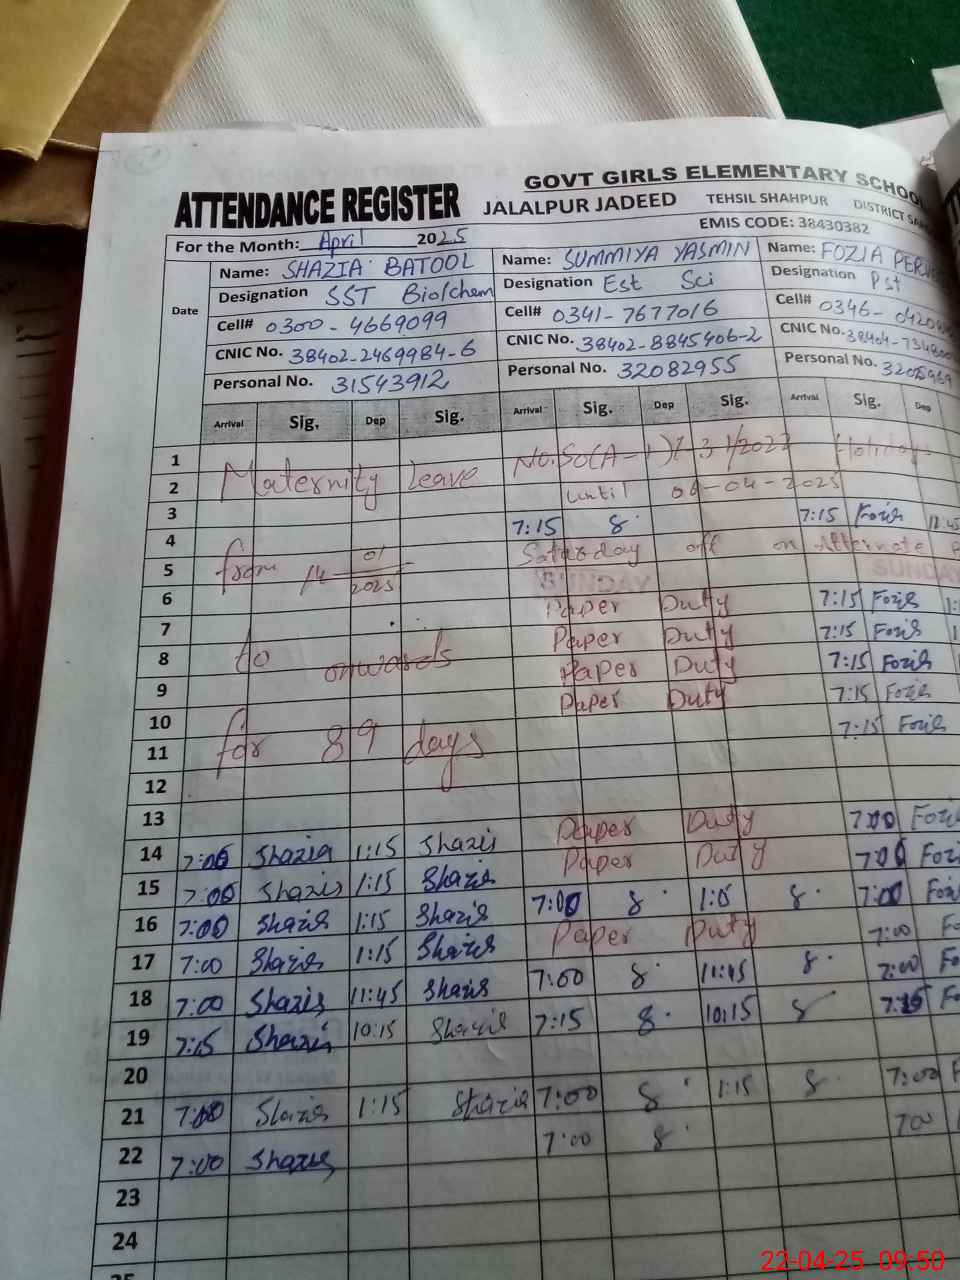 GOVT GIRLS ELEMENTARY SCHOOL
ATTENDANCE REGISTER JALALPUR JADEED TEHSIL SHAHPUR DISTRICT
EMIS CODE: 38430382
For the Month: April 2025
Date
Name: SHAZIA BATOOL Name: SUMMIYA YASMIN Name: FOZIA
Designation SST Bio/chem Designation Est Sci Designation Pst
Cell# 0300-4669099 Cell# 0341-7677016 Cell# 0346-
CNIC No. 38402-2469984-6 CNIC No. 38402-8845406-2 CNIC No. 38404-
Personal No. 31543912 Personal No. 32082955 Personal No.
Arrival Sig. Dep Sig. Arrival Sig. Dep Sig. Arrival Sig. Dep
1 Maternity leave Holidays
2 until 04-2025
3 7:15 8 7:15 Fozia
4 from 14 01 2025 Saturday off on Alternate
5 SUNDAY SUNDAY
6 Paper Duty 7:15 Fozia
7 to onwards Paper Duty 7:15 Fozia
8 Paper Duty 7:15 Fozia
9 Paper Duty 7:15 Fozia
10 for 89 days 7:15 Fozia
11
12
13
14 7:00 Shazia 1:15 Shazia Paper Duty 7:00
15 7:00 Shazia 1:15 Shazia Paper Duty 7:00
16 7:00 Shazia 1:15 Shazia 7:00 8 8 7:00
17 7:00 Shazia 1:15 Shazia Paper Duty 7:00
18 7:00 Shazia 11:45 Shazia 7:00 8 11:45 8 7:00
19 7:15 Shazia 10:15 Shazia 7:15 8 10:15 8 7:15
20
21 7:00 Shazia 1:15 Shazia 7:00 8 1:15 8 7:00
22 7:00 Shazia 7:00 8 700
23
24
22-04-25 09:50